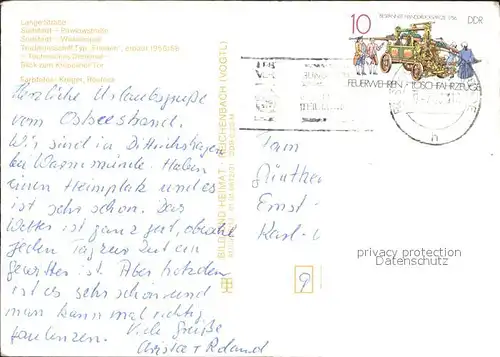 Lange Straße
Südstadt - Pawlowstraße
Südstadt - Wiesenstraße
Traditionsschiff Typ „Frieden“, erbaut 1957/58
- Technisches Denkmal -
Blick zum Kröpeliner Tor
Farbfotos: Krüger, Rostock
Herzliche Urlaubsgrüße
vom Ostseestrand.
Wir sind in Dittrichshagen
bei Warnemünde. Haben
einen Heimplatz und es
ist sehr schön. Das
Wetter ist ganz gut, obwohl
jeden Tag zur Zeit ein
gewitter ist. Aber trotzdem
ist es sehr schön und
man kann mal richtig
faulenzen. Viele Grüße
Christa + Roland
BILD UND HEIMAT · REICHENBACH (VOGTL)
10
DDR
FEUERWEHREN · LÖSCHFAHRZEUGE
Fam
Günther
Ernst-
Karl-
9
privacy protection
Datenschutz